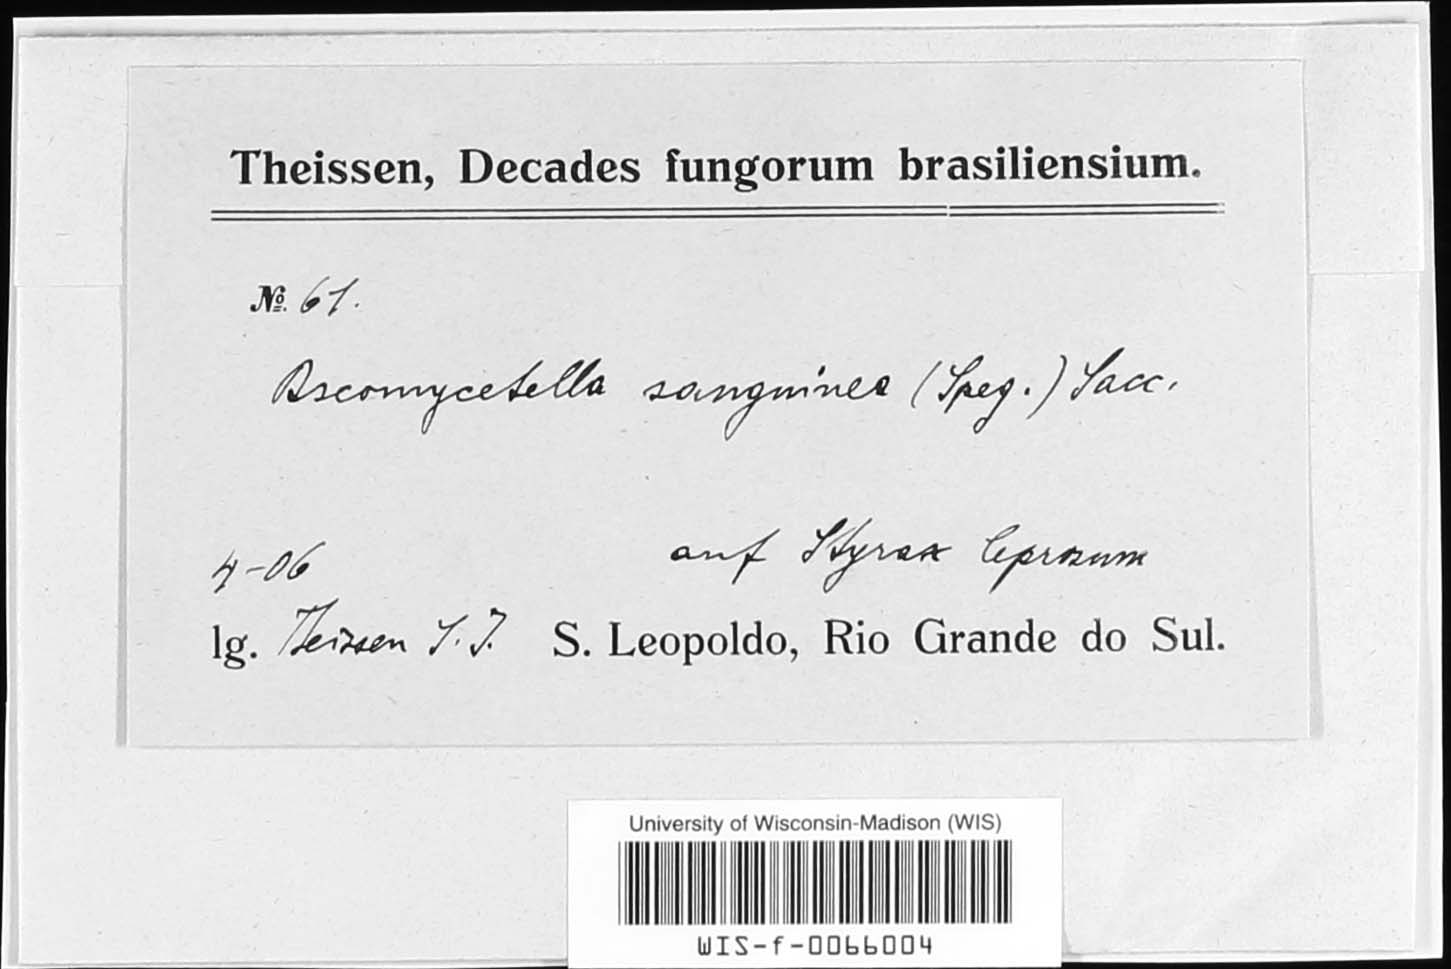 Theissen, Decades fungorum brasiliensium.
№ 61.
Ascomycetella sanguinea (Speg.) Sacc.
auf Styrax leprosum
4-06
lg. Theissen S. J. S. Leopoldo, Rio Grande do Sul.
University of Wisconsin-Madison (WIS)
WIS-f-0066004